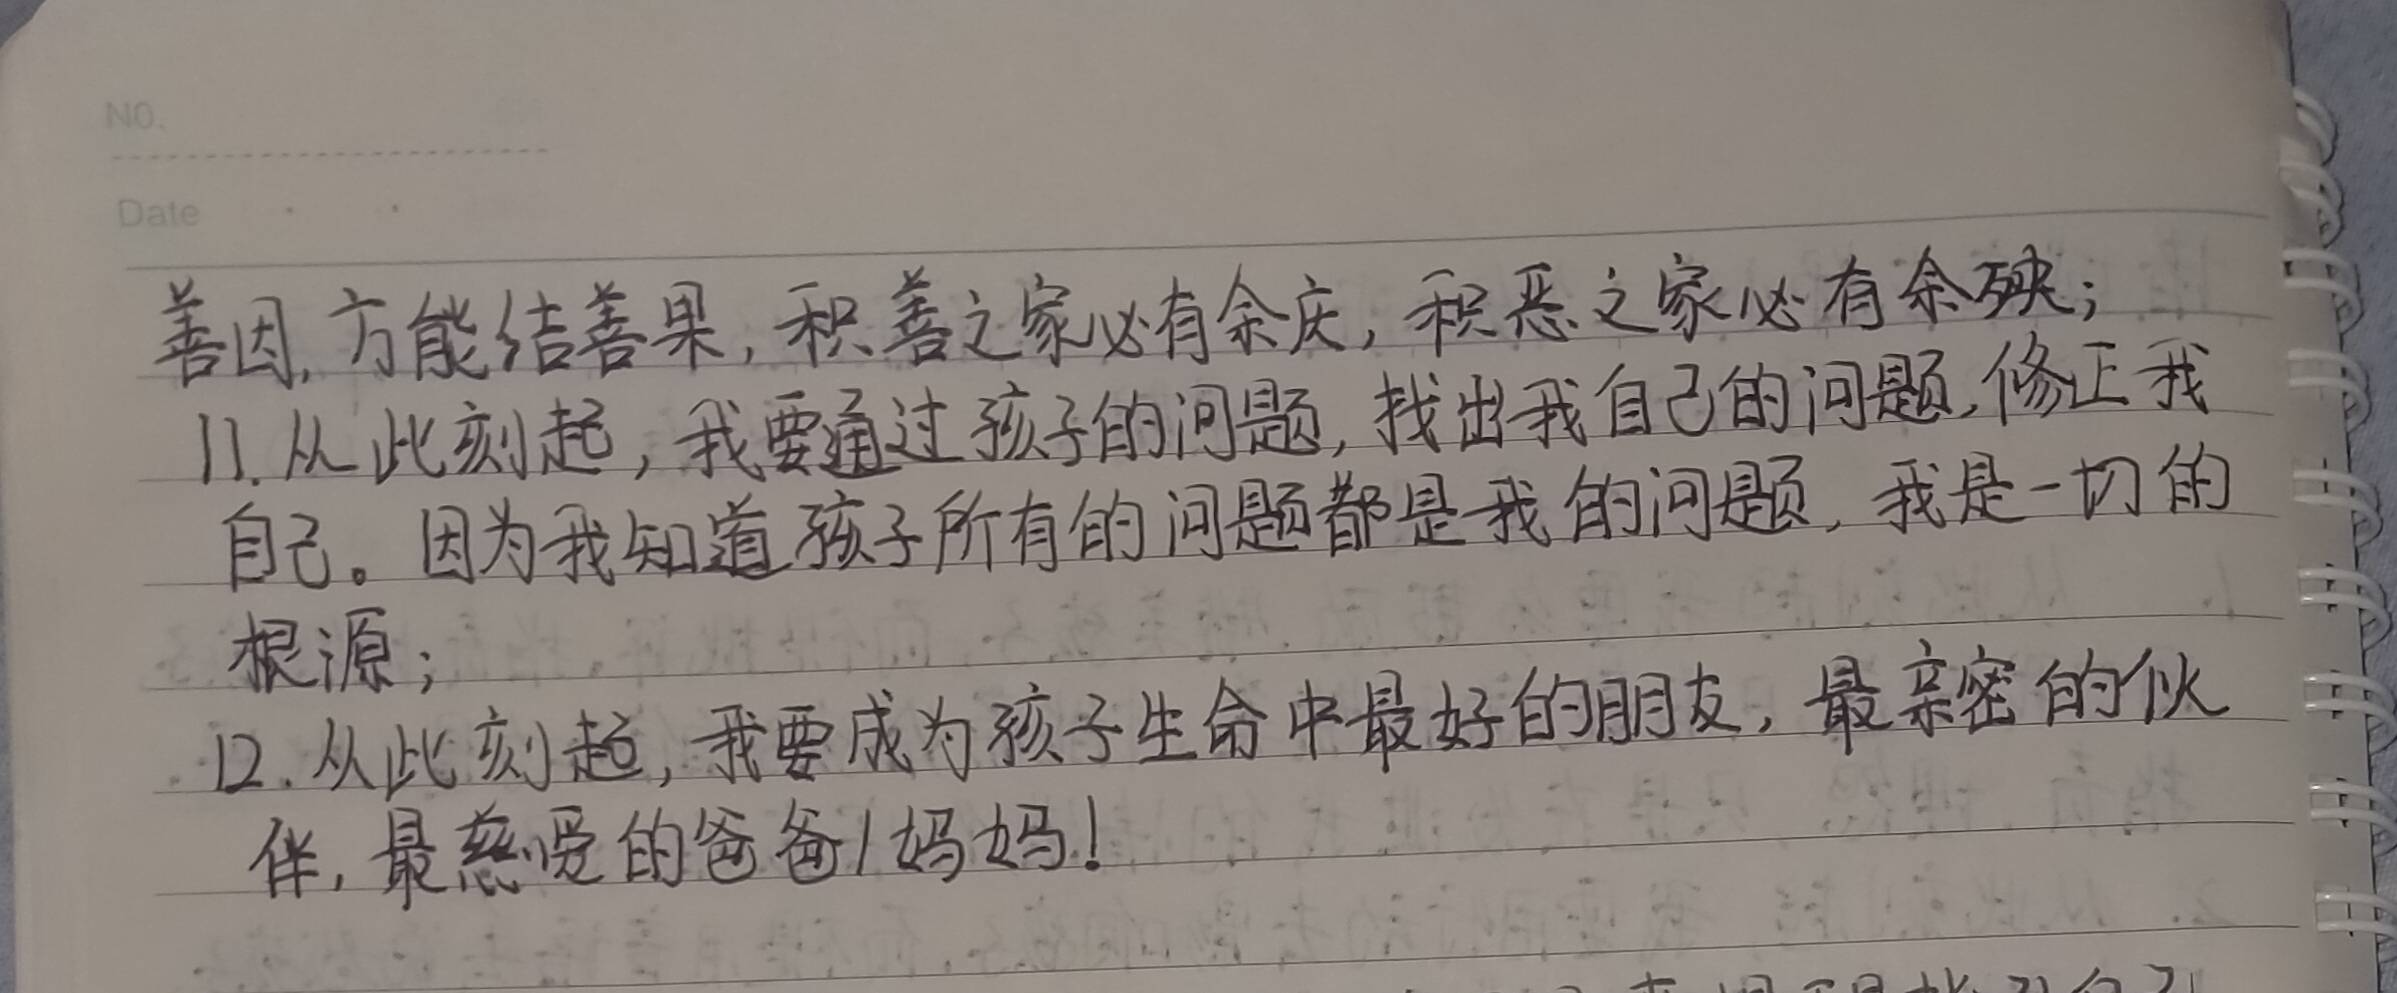 NO.
Date
善因，方能结善果，积善之家必有余庆，积恶之家必有余殃；
11.从此刻起，我要通过孩子的问题，找出我自己的问题，修正我
自己。因为我知道孩子所有的问题都是我的问题，我是一切的
根源；
12.从此刻起，我要成为孩子生命中最好的朋友，最亲密的伙
伴，最慈爱的爸爸/妈妈！